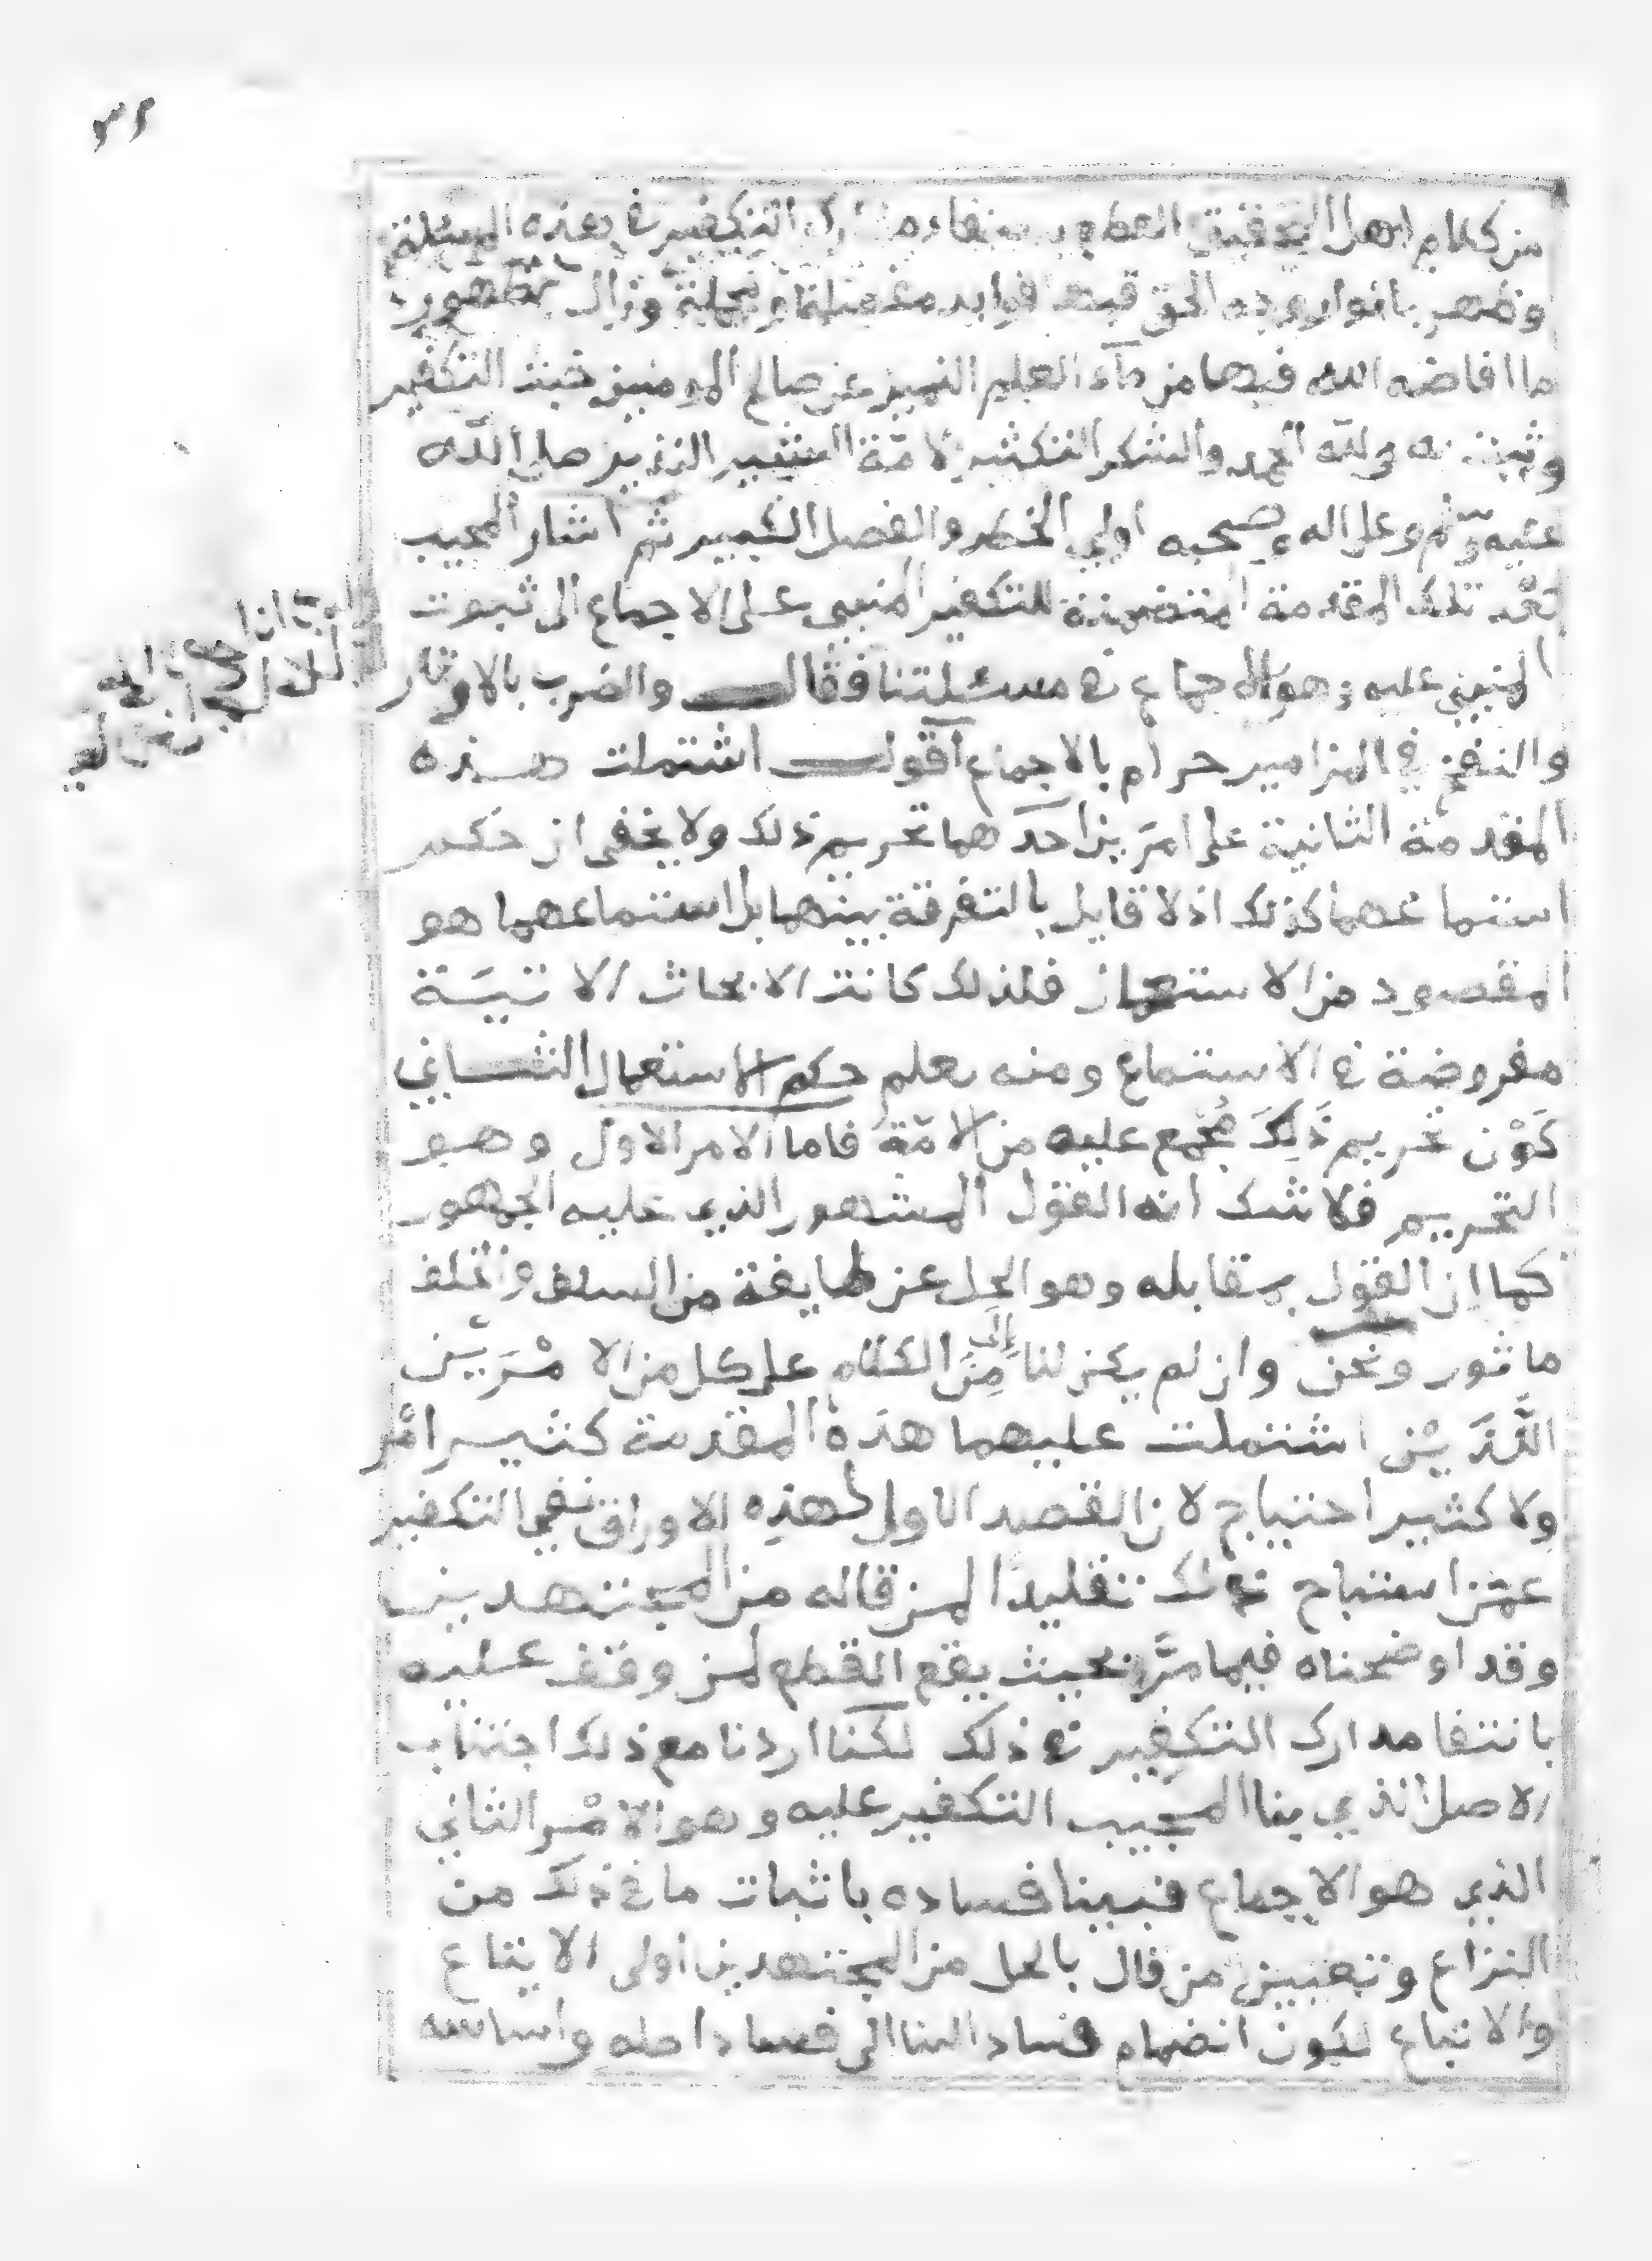 ٣٢
من كلام اهل التحقيق القطع بـ مدارك التكفير في هذه المسئلة
وظهر بانوار وجه الحق فيها فوايد مفصلة ومجملة وزال بطهور
ما افاضه الله فيها من ماء العلم النمير عن صالح المومنين خبث التكفير
وثبت ولله الحمد والشكر الكثير لامة البشير النذير صلى الله
عليه وسلم وعلى اله وصحبه اولي الخطر والفضل الكبير ثم اشار المجيب
بعد تلك المقدمة المتضمنة للتكفير المنبي على الاجماع الى ثبوت
المنبني عليه وهو الاجماع في مسئلتنا فقال والضرب بالاوتار
والنفخ في المزامير حرام بالاجماع اقول اشتملت هذه
المقدمة الثانية على امرين احدهما تحريم ذلك ولا يخفى ان حكم
استماعهما كذلك اذ لا قايل بالتفرقة بينهما بل استماعهما هو
المقصود من الاستعمال فلذلك كانت الابحاث الاتية
مفروضة في الاستماع ومنه يعلم حكم الاستعمال الثاني
كون تحريم ذلك مجمع عليه من الامة فاما الامر الاول وهو
التحريم فلا شك انه القول المشهور الذي عليه الجمهور
كما ان القول بمقابله وهو الحل عن طايفة من السلف والخلف
ماثور ونحن وان لم يكن لنا إلى مِنَ الكلام على كل من الامرين
اللذين اشتملت عليهما هذه المقدمة كثير امر
ولا كثير احتياج لان القصد الاول لهذه الاوراق نفي التكفير
عمن استباح ذلك تقليدا لمن قاله من المجتهدين
وقد اوضحناه فيما مر بحيث يقع القطع لمن وقف عليه
بانتفا مدارك التكفير في ذلك لكنا اردنا مع ذلك اجتناب
الاصل الذي بنا المجيب التكفير عليه وهو الامر الثاني
الذي هو الاجماع فبينا فساده باثبات ما في ذلك من
النزاع وتعيين من قال بالحل من المجتهدين اولى الايتاع
والاتباع لكون انضمام فساد البنا الى فساد اصله واساسه